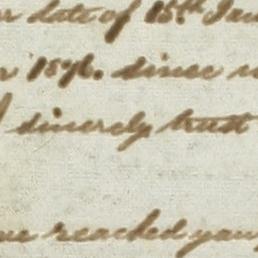 date of 15th Jan
1876. since
I sincerely trust
reached your